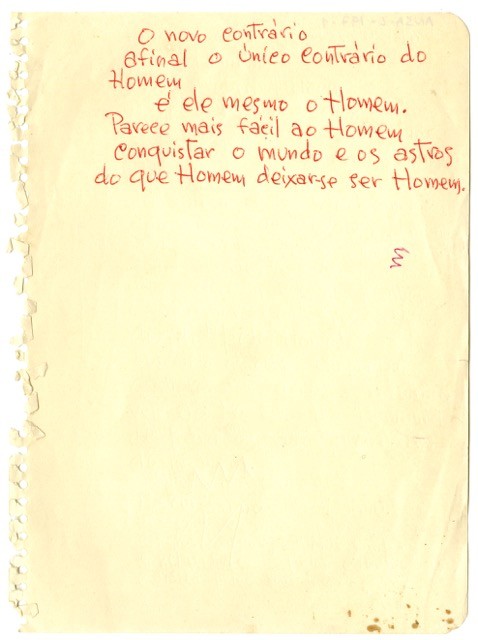 O novo contrário
afinal o único contrário do
Homem
é ele mesmo o Homem.
Parece mais fácil ao Homem
conquistar o mundo e os astros
do que Homem deixar-se ser Homem.